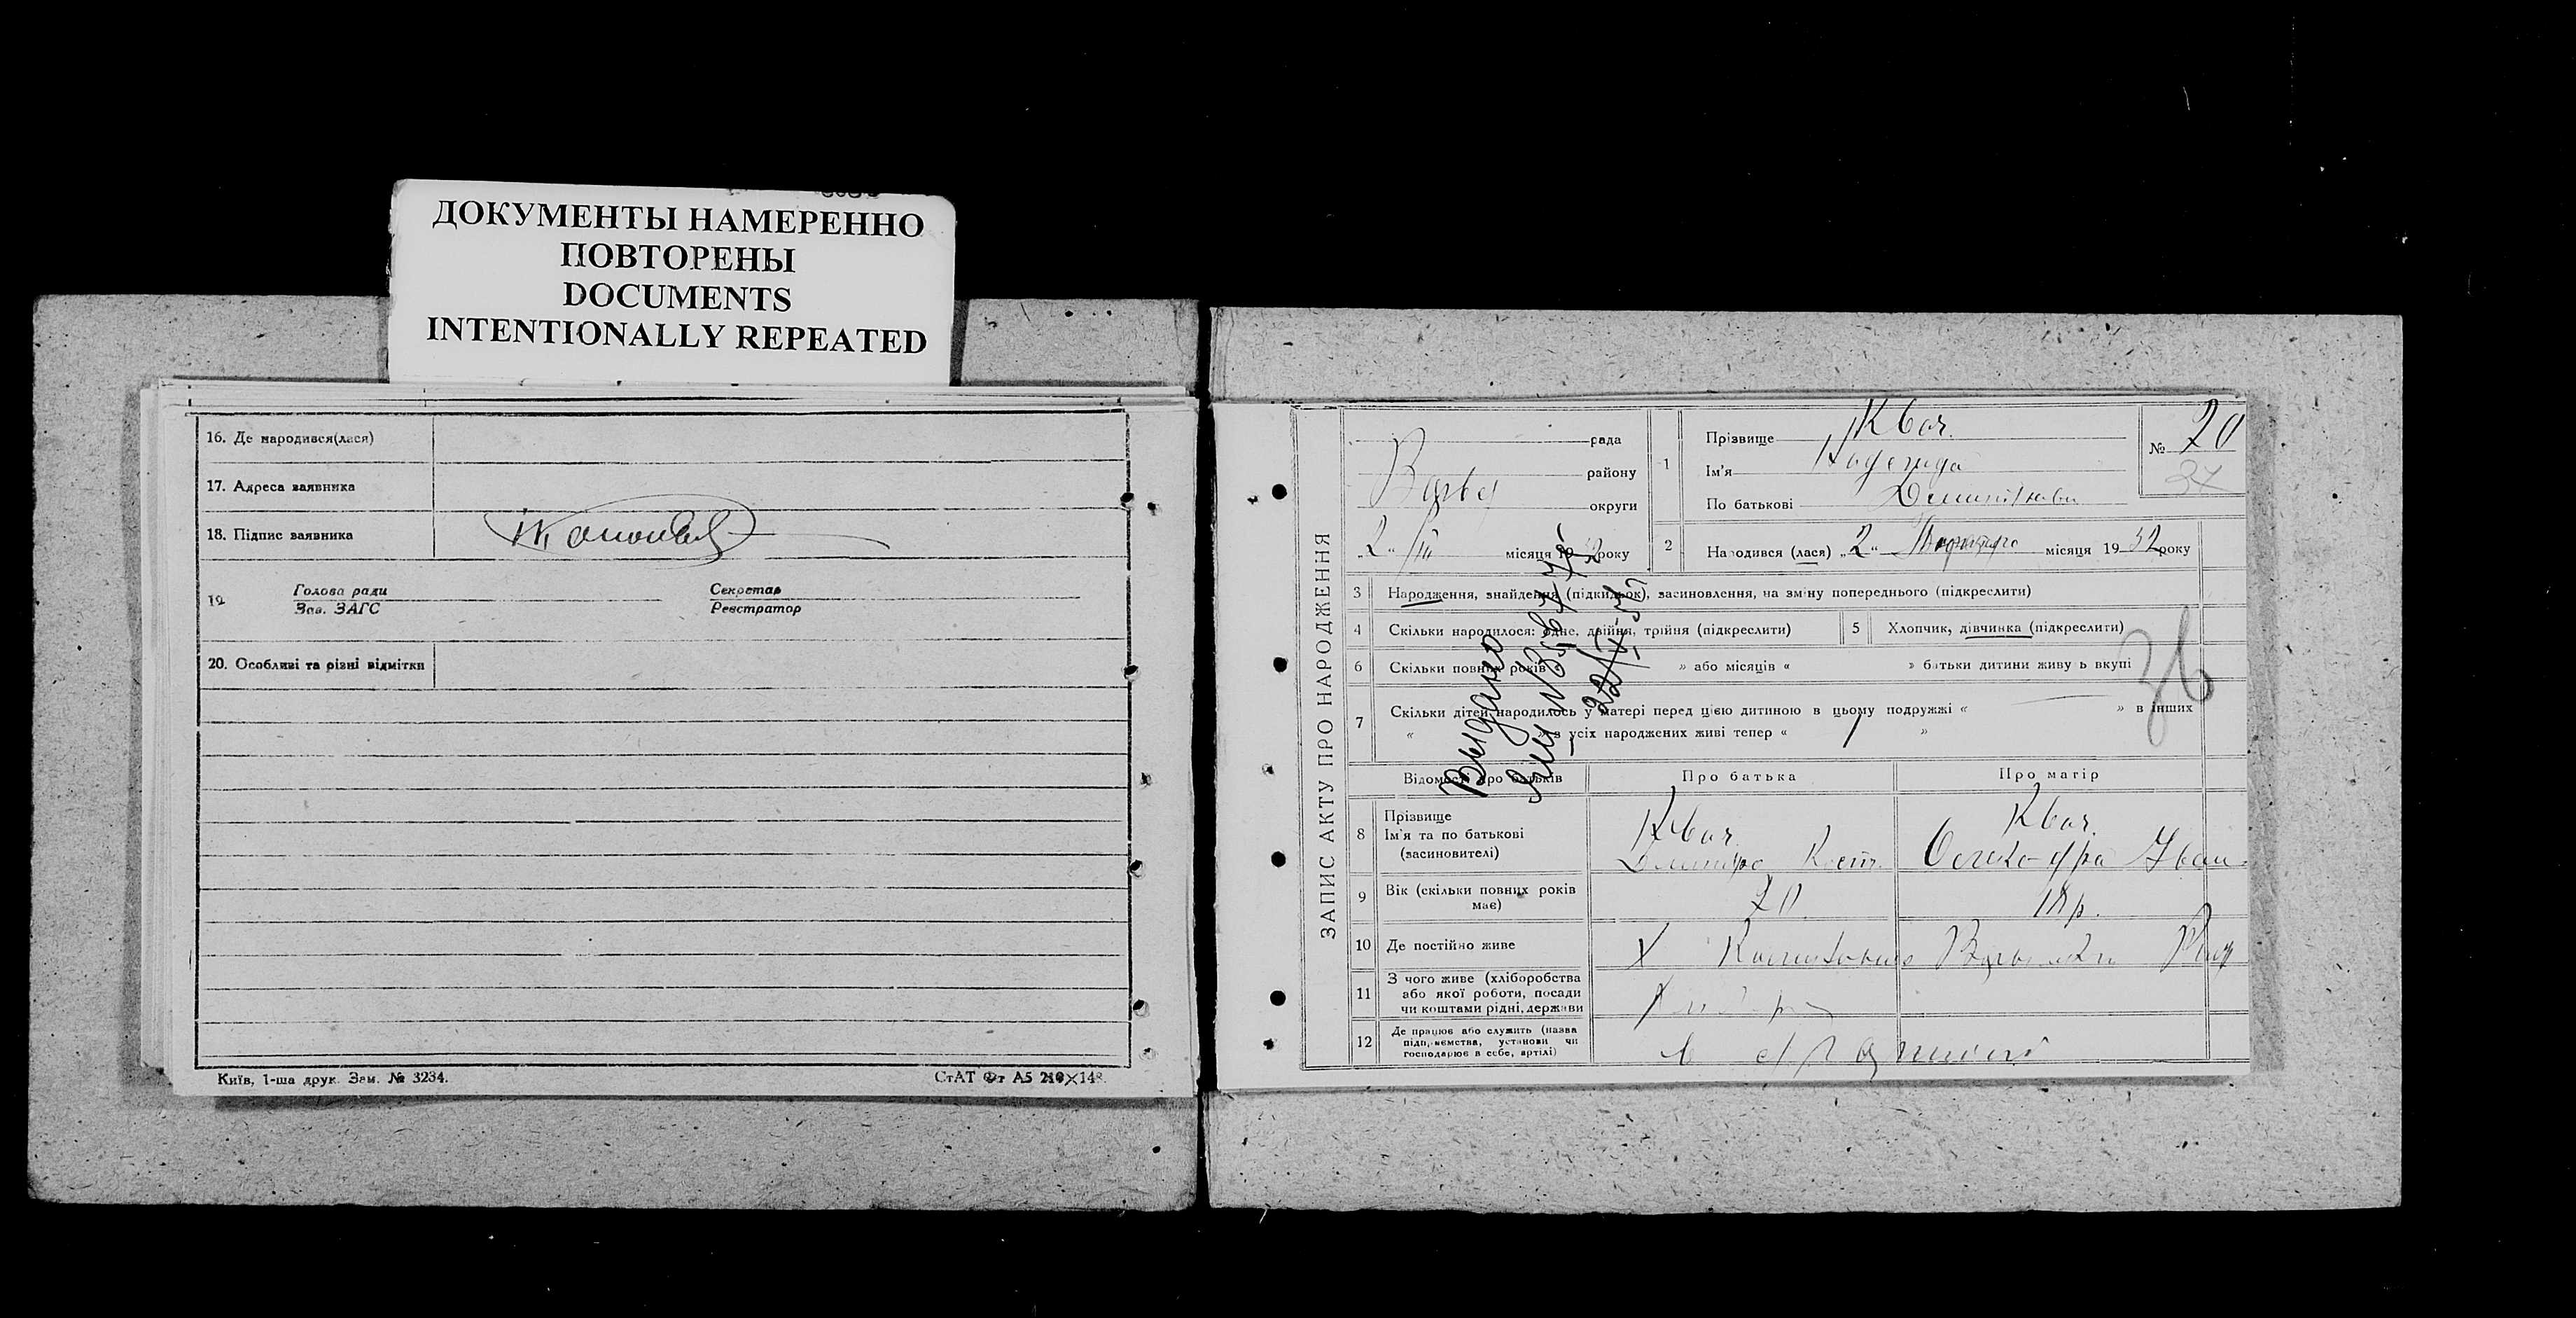 ДОКУМЕНТЫ НАМЕРЕННО
ПОВТОРЕНЫ
DOCUMENTS
INTENTIONALLY REPEATED
16. Де народився(лася)
17. Адреса заявника
18. Підпис заявника
19
Голова ради
Зав. ЗАГС
Секретар
Реєстратор
20. Особливі та різні відмітки
Київ, 1-ша друк. Зам. № 3234.
СтАТ Фт А5 210×148.
ЗАПИС АКТУ ПРО НАРОДЖЕННЯ
рада
району
округи
„2“ /III місяця 1932 року
1
Прізвище Квач
Ім'я Надежда
По батькові
№ 20
37
2 Народився (лася) „2“ місяця 1932 року
3 Народження, знайдення (підкидьок), засиновлення, на зміну попереднього (підкреслити)
4 Скільки народилося: одне, двійня, трійня (підкреслити)
5 Хлопчик, дівчинка (підкреслити)
6 Скільки повних років » або місяців « » батьки дитини живуть вкупі
36
7 Скільки дітей народилось у матері перед цією дитиною в цьому подружжі « » в інших
« з усіх народжених живі тепер « 1 »
Выдано
22/X
Відомості про батьків
Про батька
Про матір
8 Прізвище
Ім'я та по батькові
(засиновителі)
Квач
Дмитро Кост.
Квач
Іван
9 Вік (скільки повних років
має)
20
18 р.
10 Де постійно живе
Х
11 З чого живе (хліборобства
або якої роботи, посади
чи коштами рідні, держави
12 Де працює або служить (назва
підприємства, установи чи
господарює в себе, артілі)